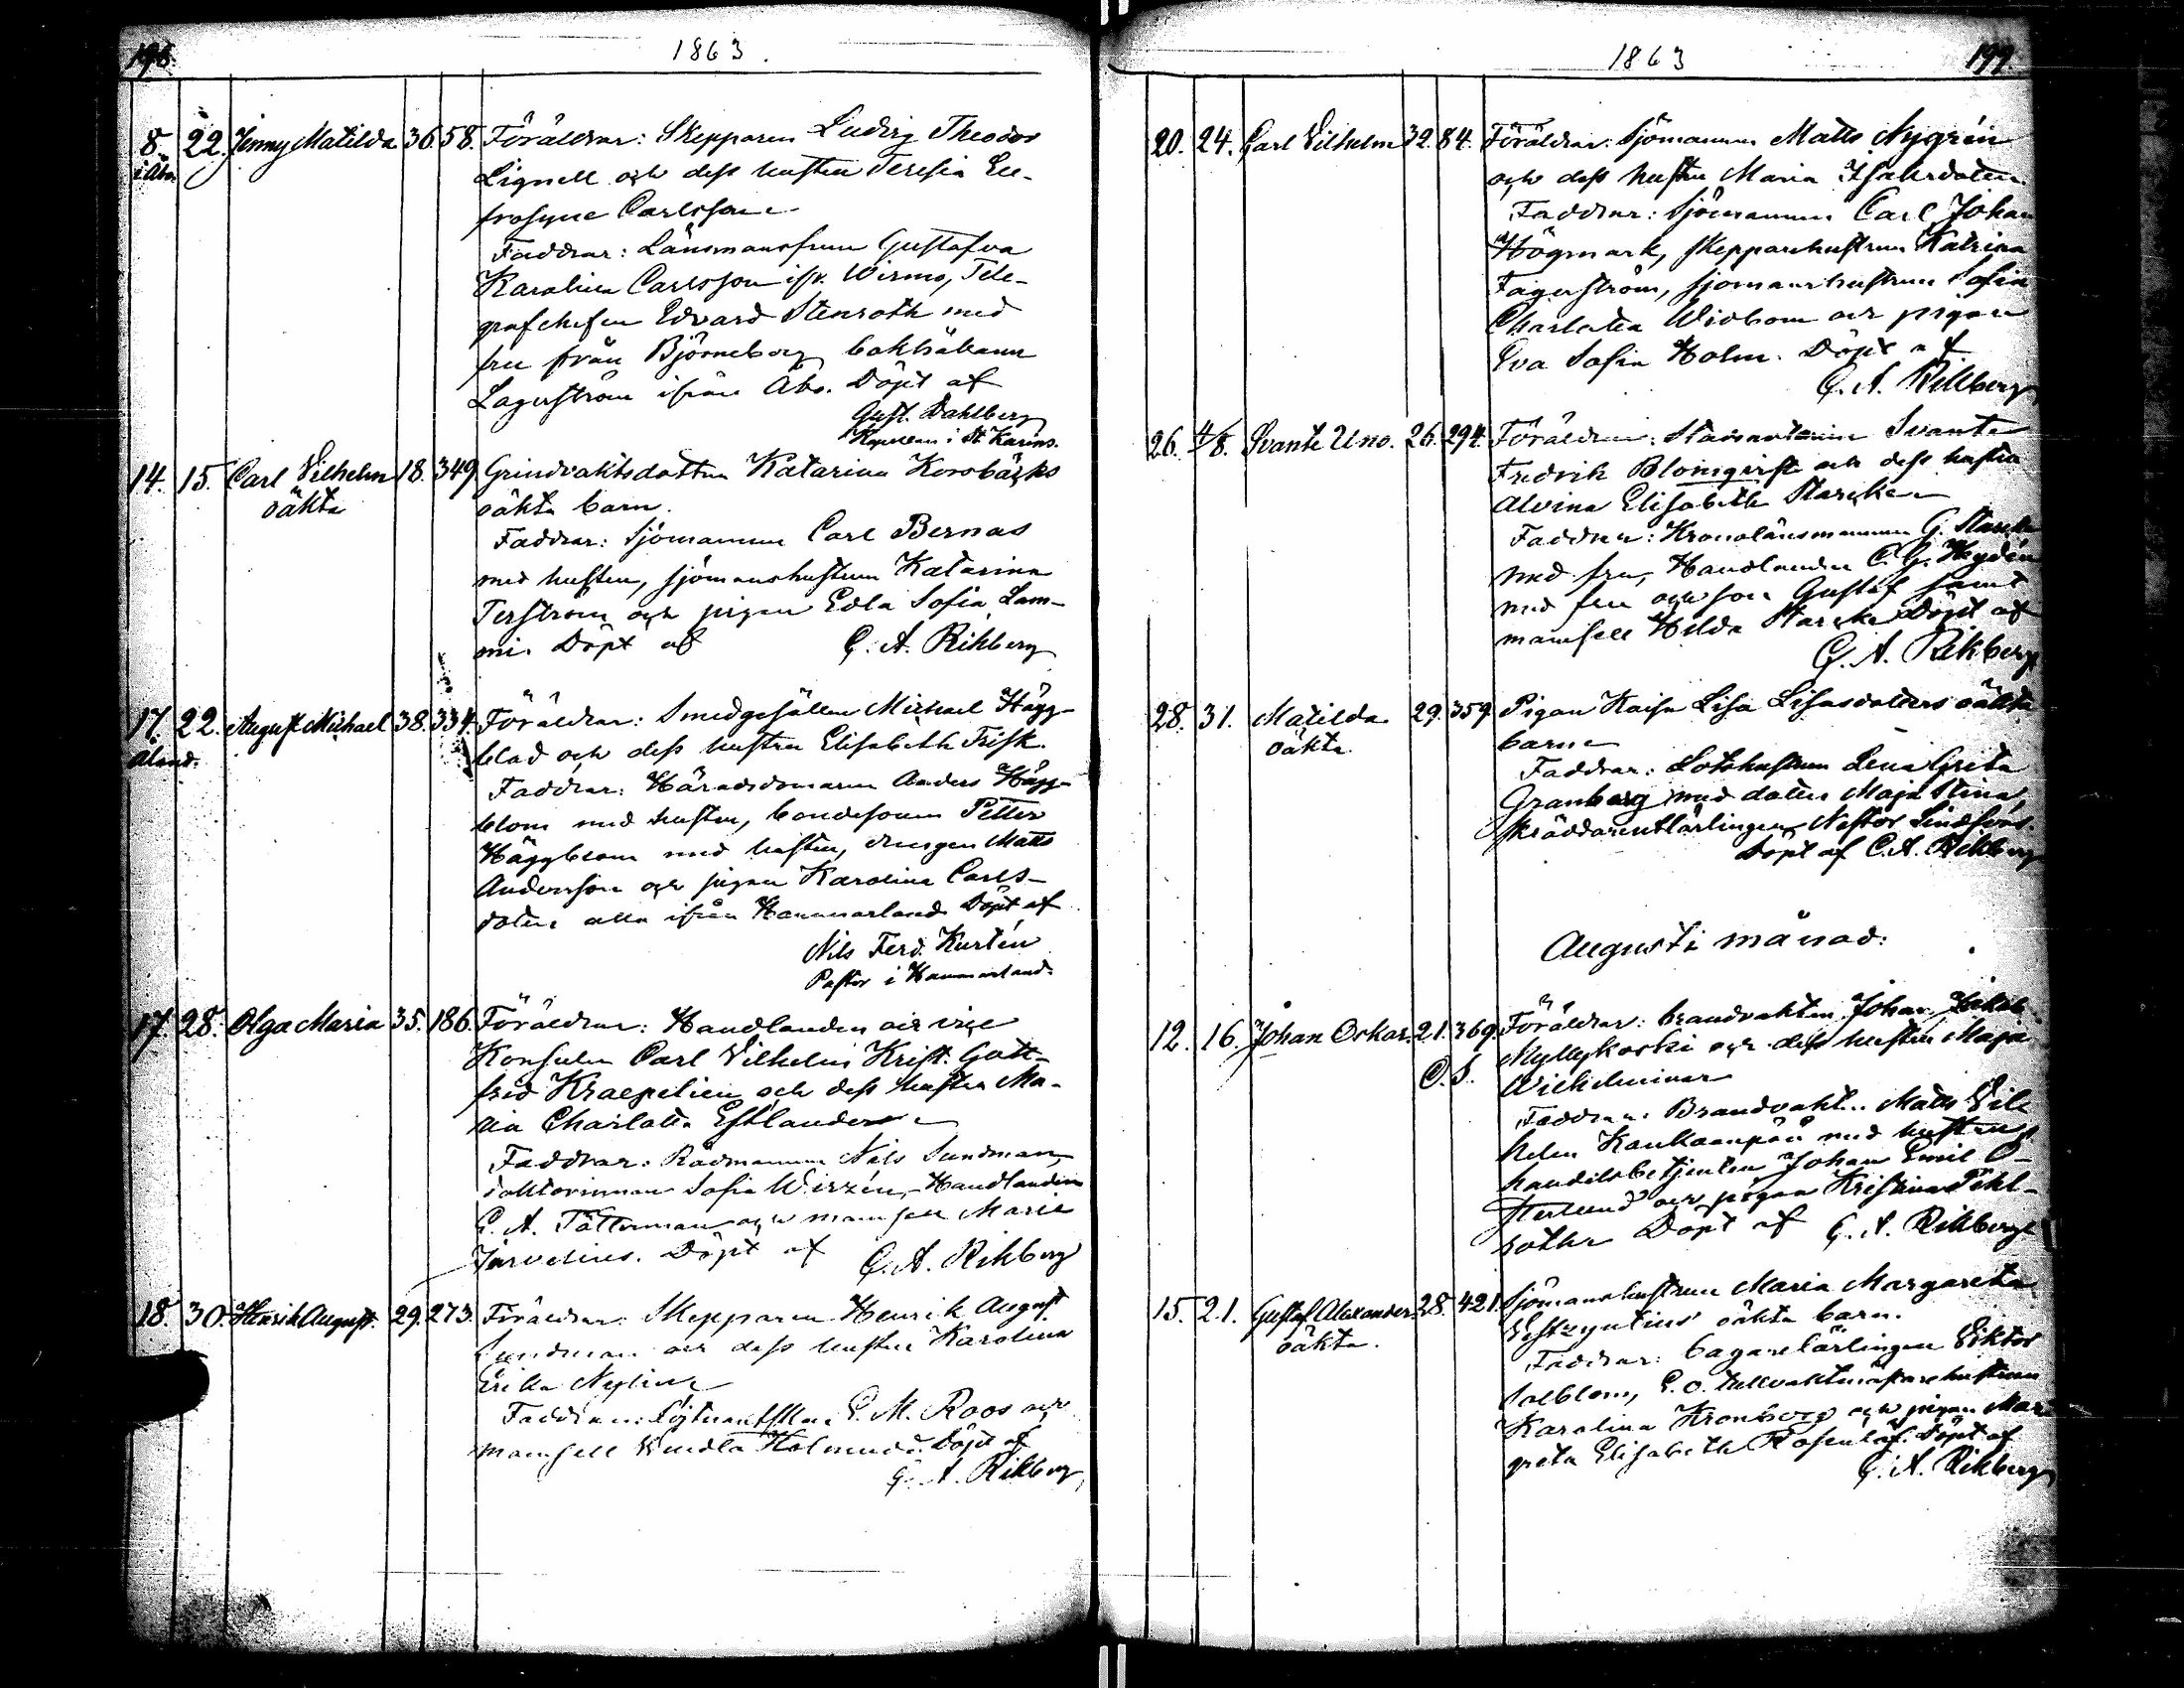 198. 1863.
8. 22. Jenny Matilda 36. 58. Föräldrar: Skepparen Ludvig Theodor
i Åbo. Lignell och dess hustru Teresia Eu-
frosyne Carlsson
Faddrar: Länsmansfrun Gustafva
Karolina Carlsson ifr. Wirmo, Tele-
grafchefen Edvard Stenroth med
fru från Björneborg, bokhållaren
Lagerström ifrån Åbo. Döpt af
Gust. Dahlberg
Kapellan i St Karins.
14. 15. Carl Vilhelm 18. 349. Grindvaktsdottren Katarina Korsbäcks
oäkta oäkta barn.
Faddrar: Sjömannen Carl Bernas
med hustru, sjömanshustrun Katarina
Terström och pigan Edla Sofia Lam-
mi. Döpt af G. A. Rikberg
17. 22. August Michael 38. 334. Föräldrar: Smedgesällen Michael Hägg-
Åland. blad och dess hustru Elisabeth Frisk.
Faddrar: Häradsdomaren Anders Hägg-
blom med hustru, bondesonen Petter
Häggblom med hustru, drängen Matts
Andersson och pigan Karolina Carls-
doter alla ifrån Hammarland. Döpt af
Nils Ferd. Kurtén
Pastor i Hammarland.
17. 28. Olga Maria 35. 186. Föräldrar: Handlanden och vice
Konsuln Carl Vilhelm Krist. Gott-
frid Kraepelien och dess hustru Ma-
ria Charlotta Estlander
Faddrar: Rådmannen Nils Sundman,
doktorinnan Sofia Wirzén, Handlanden
C. A. Tötterman och mamsell Marie
Järvelius. Döpt af G. A. Rikberg
18. 30. Henrik August. 29. 273. Föräldrar: Skepparen Henrik August
Sundman och dess hustru Karolina
Erika Nylin
Faddrar: E. M. Roos och
mamsell Vendla Holmudd. Döpt af
G. A. Rikberg
1863 199.
20. 24. Carl Vilhelm 32. 84. Föräldrar: Sjömannen Matts Nygrén
och dess hustru Maria Isaksdoter.
Faddrar: Sjömannen Carl Johan
Högmark, skepparehustrun Katrina
Fagerström, sjömanshustrun Sofia
Charlotta Widbom och pigan
Eva Sofia Holm. Döpt af
G. A. Rikberg
26. 4/8. Svante Uno. 26. 294. Föräldrar: Svante
Fredrik Blomqvist och dess hustru
Alvina Elisabeth Starcke
Faddrar: Kronolänsmannen G. Starcke
med fru, Handlanden C. G. Heydén
med fru och son Gustaf samt
mamsell Hilda Starcke. Döpt af
G. A. Rikberg
28. 31. Matilda 29. 359. Pigan Kajsa Lisa Lisasdoters oäkta
oäkta. barn
Faddrar: Lotshustrun Lena Greta
Granberg med doter Maja Stina,
skräddarentlärlingen Nestor Lindfors.
Döpt af G. A. Rikberg
Augusti månad.
12. 16. Johan Oskar. 21. 369. Föräldrar: brandvakten Johan
O. S. Myllykoski och dess hustru Maja
Wilhelmina
Faddrar: Brandvakt.. Matts Vil-
helm Kankaanpää med hustru,
handelsbetjenten Johan Emil Ö-
sterlund och pigan Kristina Pihl-
roth. Döpt af G. A. Rikberg
15. 21. Gustaf Alexander. 28. 421. Sjömanshustrun Maria Margareta
oäkta. oäkta barn.
Faddrar: bagarelärlingen Viktor
Salblom, E. O. tullvaktmästarehustrun
Karolina Kronberg och pigan Mar-
greta Elisabeth Rosenlöf. Döpt af
G. A. Rikberg